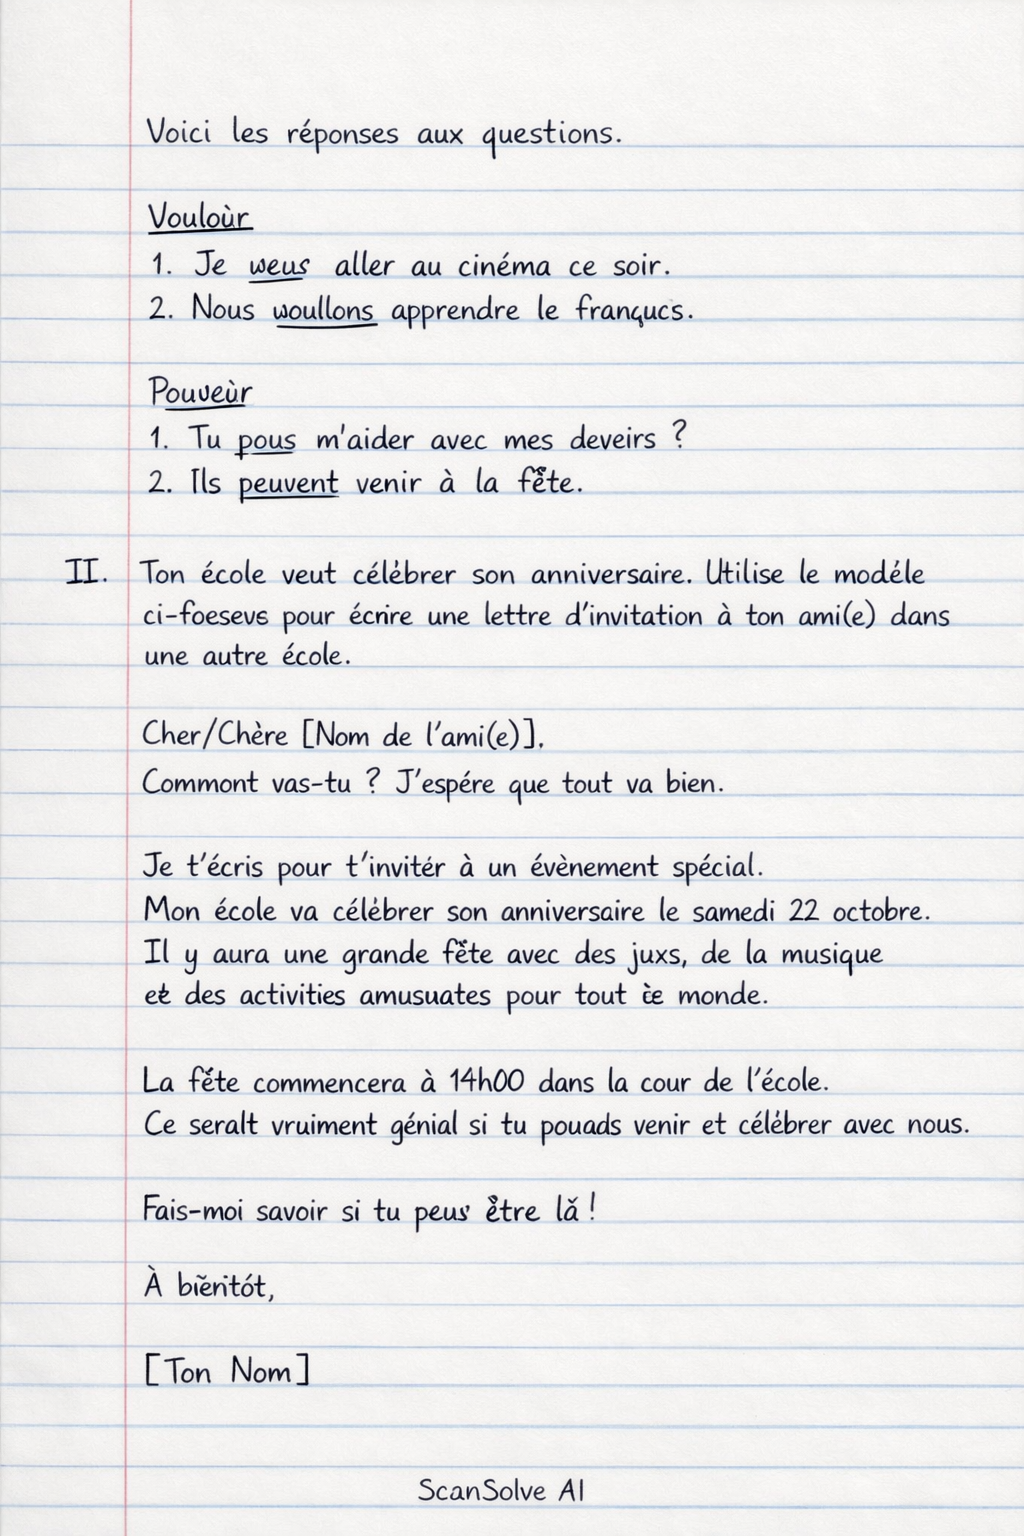 Voici les réponses aux questions.
Vouloùr
1. Je weus aller au cinéma ce soir.
2. Nous woullons apprendre le françucs.
Pouveùr
1. Tu pous m'aider avec mes deveirs ?
2. Ils peuvent venir à la fête.
II. Ton école veut célébrer son anniversaire. Utilise le modéle
ci-foesevs pour écrire une lettre d'invitation à ton ami(e) dans
une autre école.
Cher/Chère [Nom de l'ami(e)],
Commont vas-tu ? J'espére que tout va bien.
Je t'écris pour t'invitér à un évènement spécial.
Mon école va célébrer son anniversaire le samedi 22 octobre.
Il y aura une grande fête avec des juxs, de la musique
et des activities amusuates pour tout èe monde.
La féte commencera à 14h00 dans la cour de l'école.
Ce seralt vruiment génial si tu pouads venir et célébrer avec nous.
Fais-moi savoir si tu peus être lǎ !
À bientót,
[Ton Nom]
ScanSolve AI